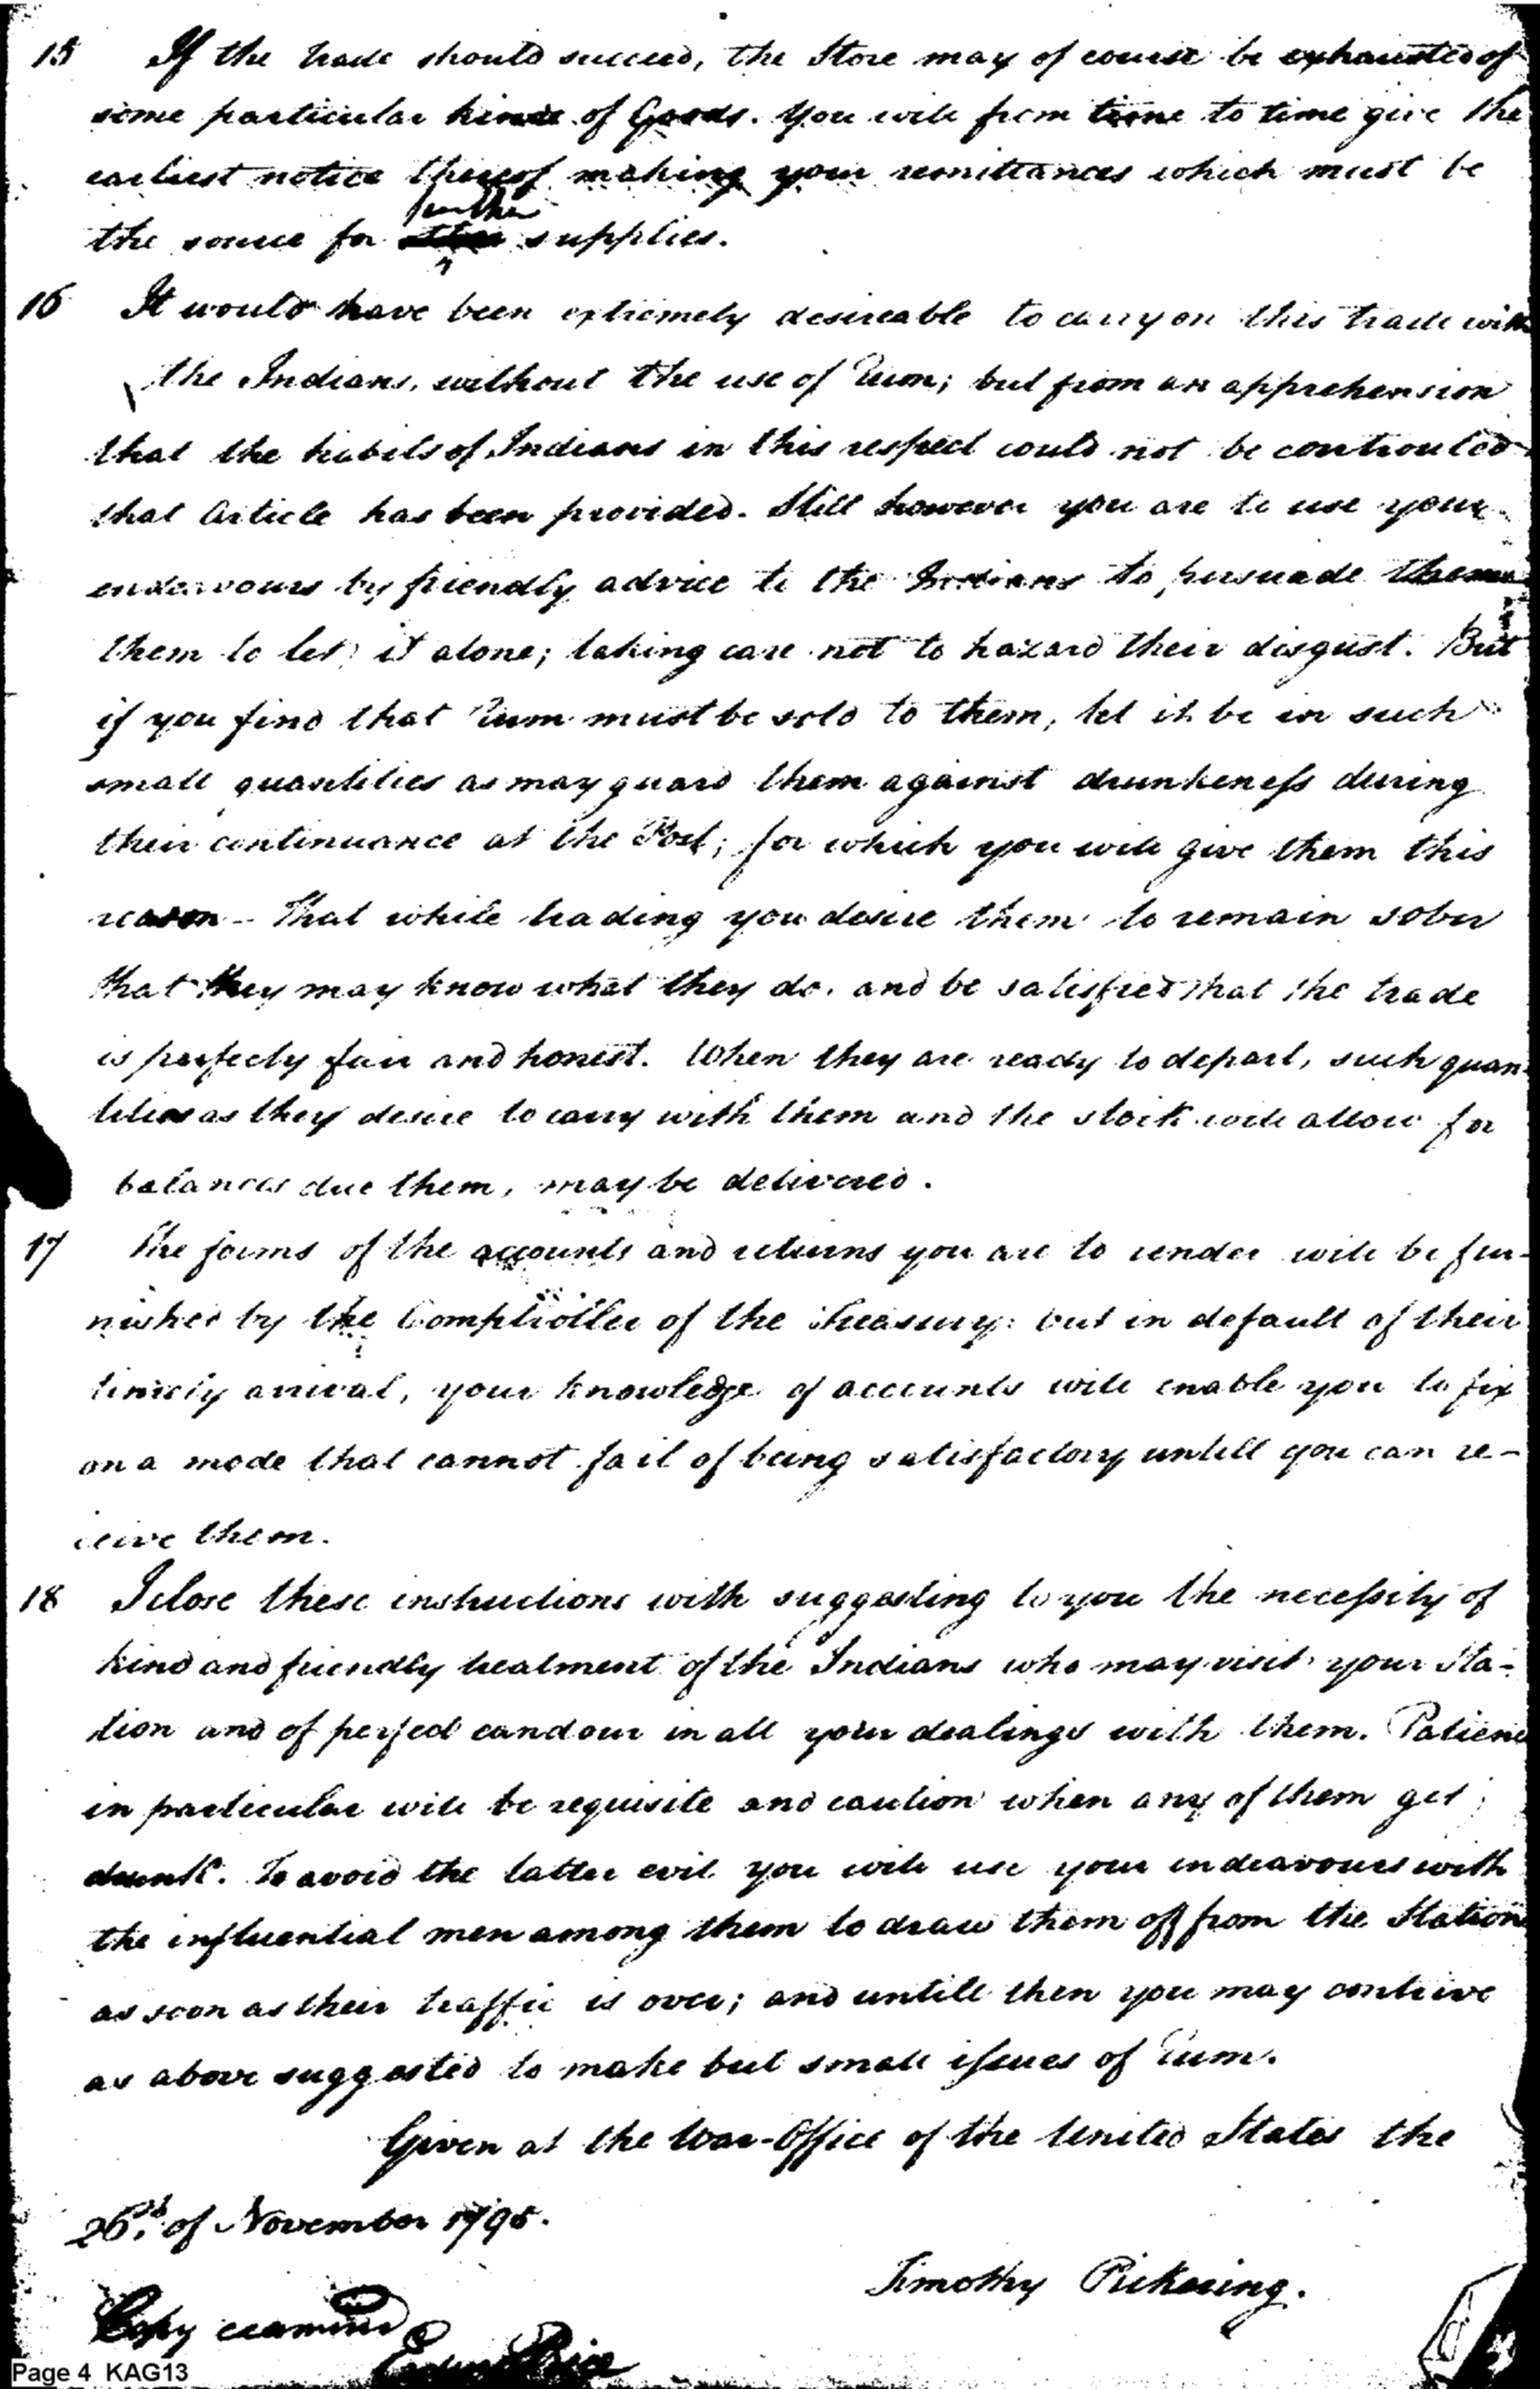 15 If the trade should succeed, the Store may of course be exhausted of
some particular kinds of Goods. You will from time to time give the
earliest notice thereof making your remittances which must be
further
the source for supplies.
16 It would have been extremely desireable to carry on this trade with
the Indians, without the use of Rum; but from an apprehension
that the habits of Indians in this respect could not be controuled
that Article has been provided. Still however you are to use your
endeavours by friendly advice to the Indians to persuade them
them to let it alone; taking care not to hazard their disgust. But
if you find that Rum must be sold to them, let it be in such
small quantities as may guard them against drunkeness during
their continuance at the Post; for which you will give them this
reason - That while trading you desire them to remain sober
that they may know what they do, and be satisfied that the trade
is perfectly fair and honest. When they are ready to depart, such quan-
tities as they desire to carry with them and the stock will allow for
balances due them, may be delivered.
17 The forms of the accounts and returns you are to render will be fur-
nished by the Comptroller of the Treasury: but in default of their
timely arrival, your knowledge of accounts will enable you to fix
on a mode that cannot fail of being satisfactory untill you can re-
ceive them.
18 I close these instructions with suggesting to you the necessity of
kind and friendly treatment of the Indians who may visit your Sta-
tion and of perfect candour in all your dealings with them. Patience
in particular will be requisite and caution when any of them get
drunk. To avoid the latter evil you will use your indeavours with
the influential men among them to draw them off from the Station
as soon as their traffic is over; and untill then you may contrive
as above suggested to make but small issues of Rum.
Given at the War-Office of the United States the
26th of November 1795.
Timothy Pickering.
Copy examined
Price
Page 4 KAG13